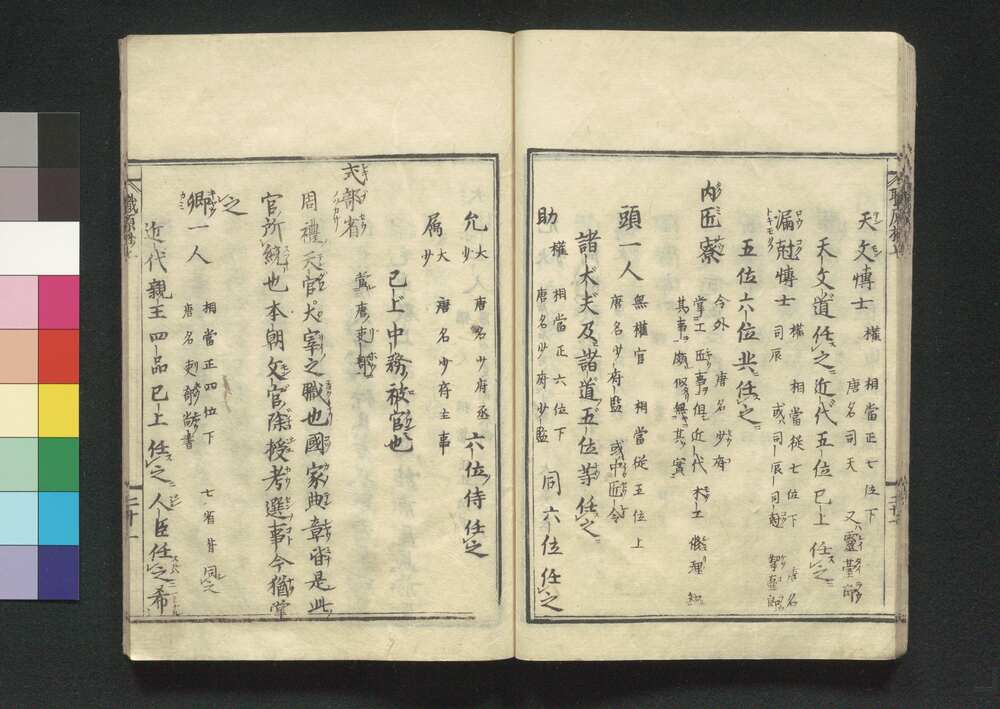 天文博士 權 相當正七位下
唐名司天 又靈臺郎
天文道任之近代五位已上任之
漏尅博士 權 相當從七位下 唐名
司辰 或司辰司尅 挈壺郎
五位六位共任之
内匠寮 今外 唐名少府
掌工匠事但近代木工修理知
其事頗似無其實
頭一人 無權官 相當從五位上
唐名少府監 或中匠令
諸大夫及諸道五位等任之
助 權 相當正六位下
唐名少府少監 同六位任之
允 大少 唐名少府丞 六位侍任之
属 大少 唐名少府主事
已上中務被官也
式部省 當唐吏部
周禮天官大宰之職也國家典章皆是此
官所統也本朝文官除授考選事今猶掌
之
卿一人 相當正四位下 七省皆同之
唐名吏部尚書
近代親王四品已上任之人臣任之希
職原抄上
二十一